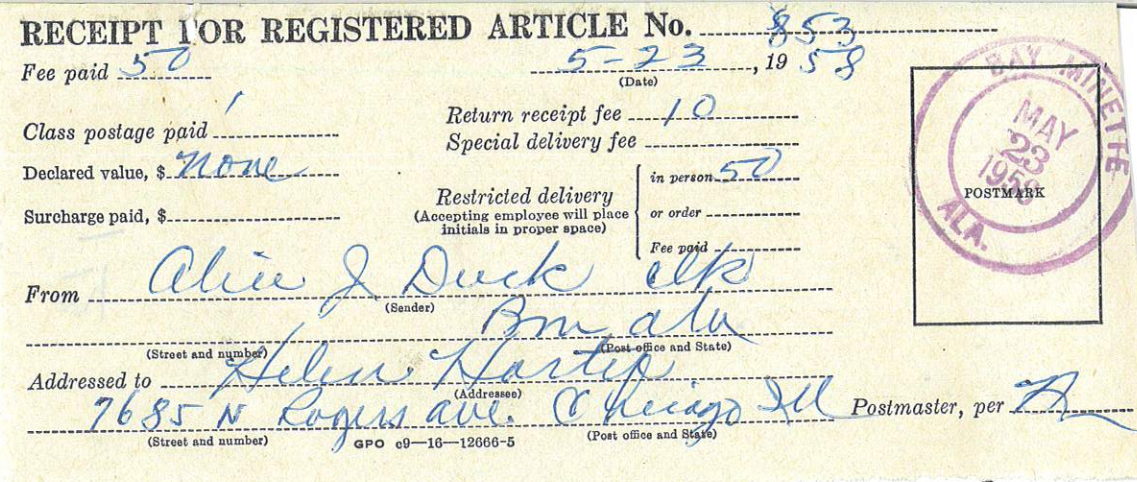 RECEIPT FOR REGISTERED ARTICLE No. 853
Fee paid 50 5-23, 19 58
(Date)
Class postage paid 1 Return receipt fee 10
Special delivery fee
Declared value, $ None
Restricted delivery in person 50
(Accepting employee will place initials in proper space) or order
Surcharge paid, $
Fee paid
From Alice J Duck clk
(Sender)
Bm ala
(Street and number) (Post office and State)
Addressed to Helen
(Addressee)
7685 N Rogers ave. Chicago Ill
(Street and number) GPO c9—16—12666-5 (Post office and State)
Postmaster, per
POSTMARK
BAY MINETTE
MAY
23
1958
ALA.